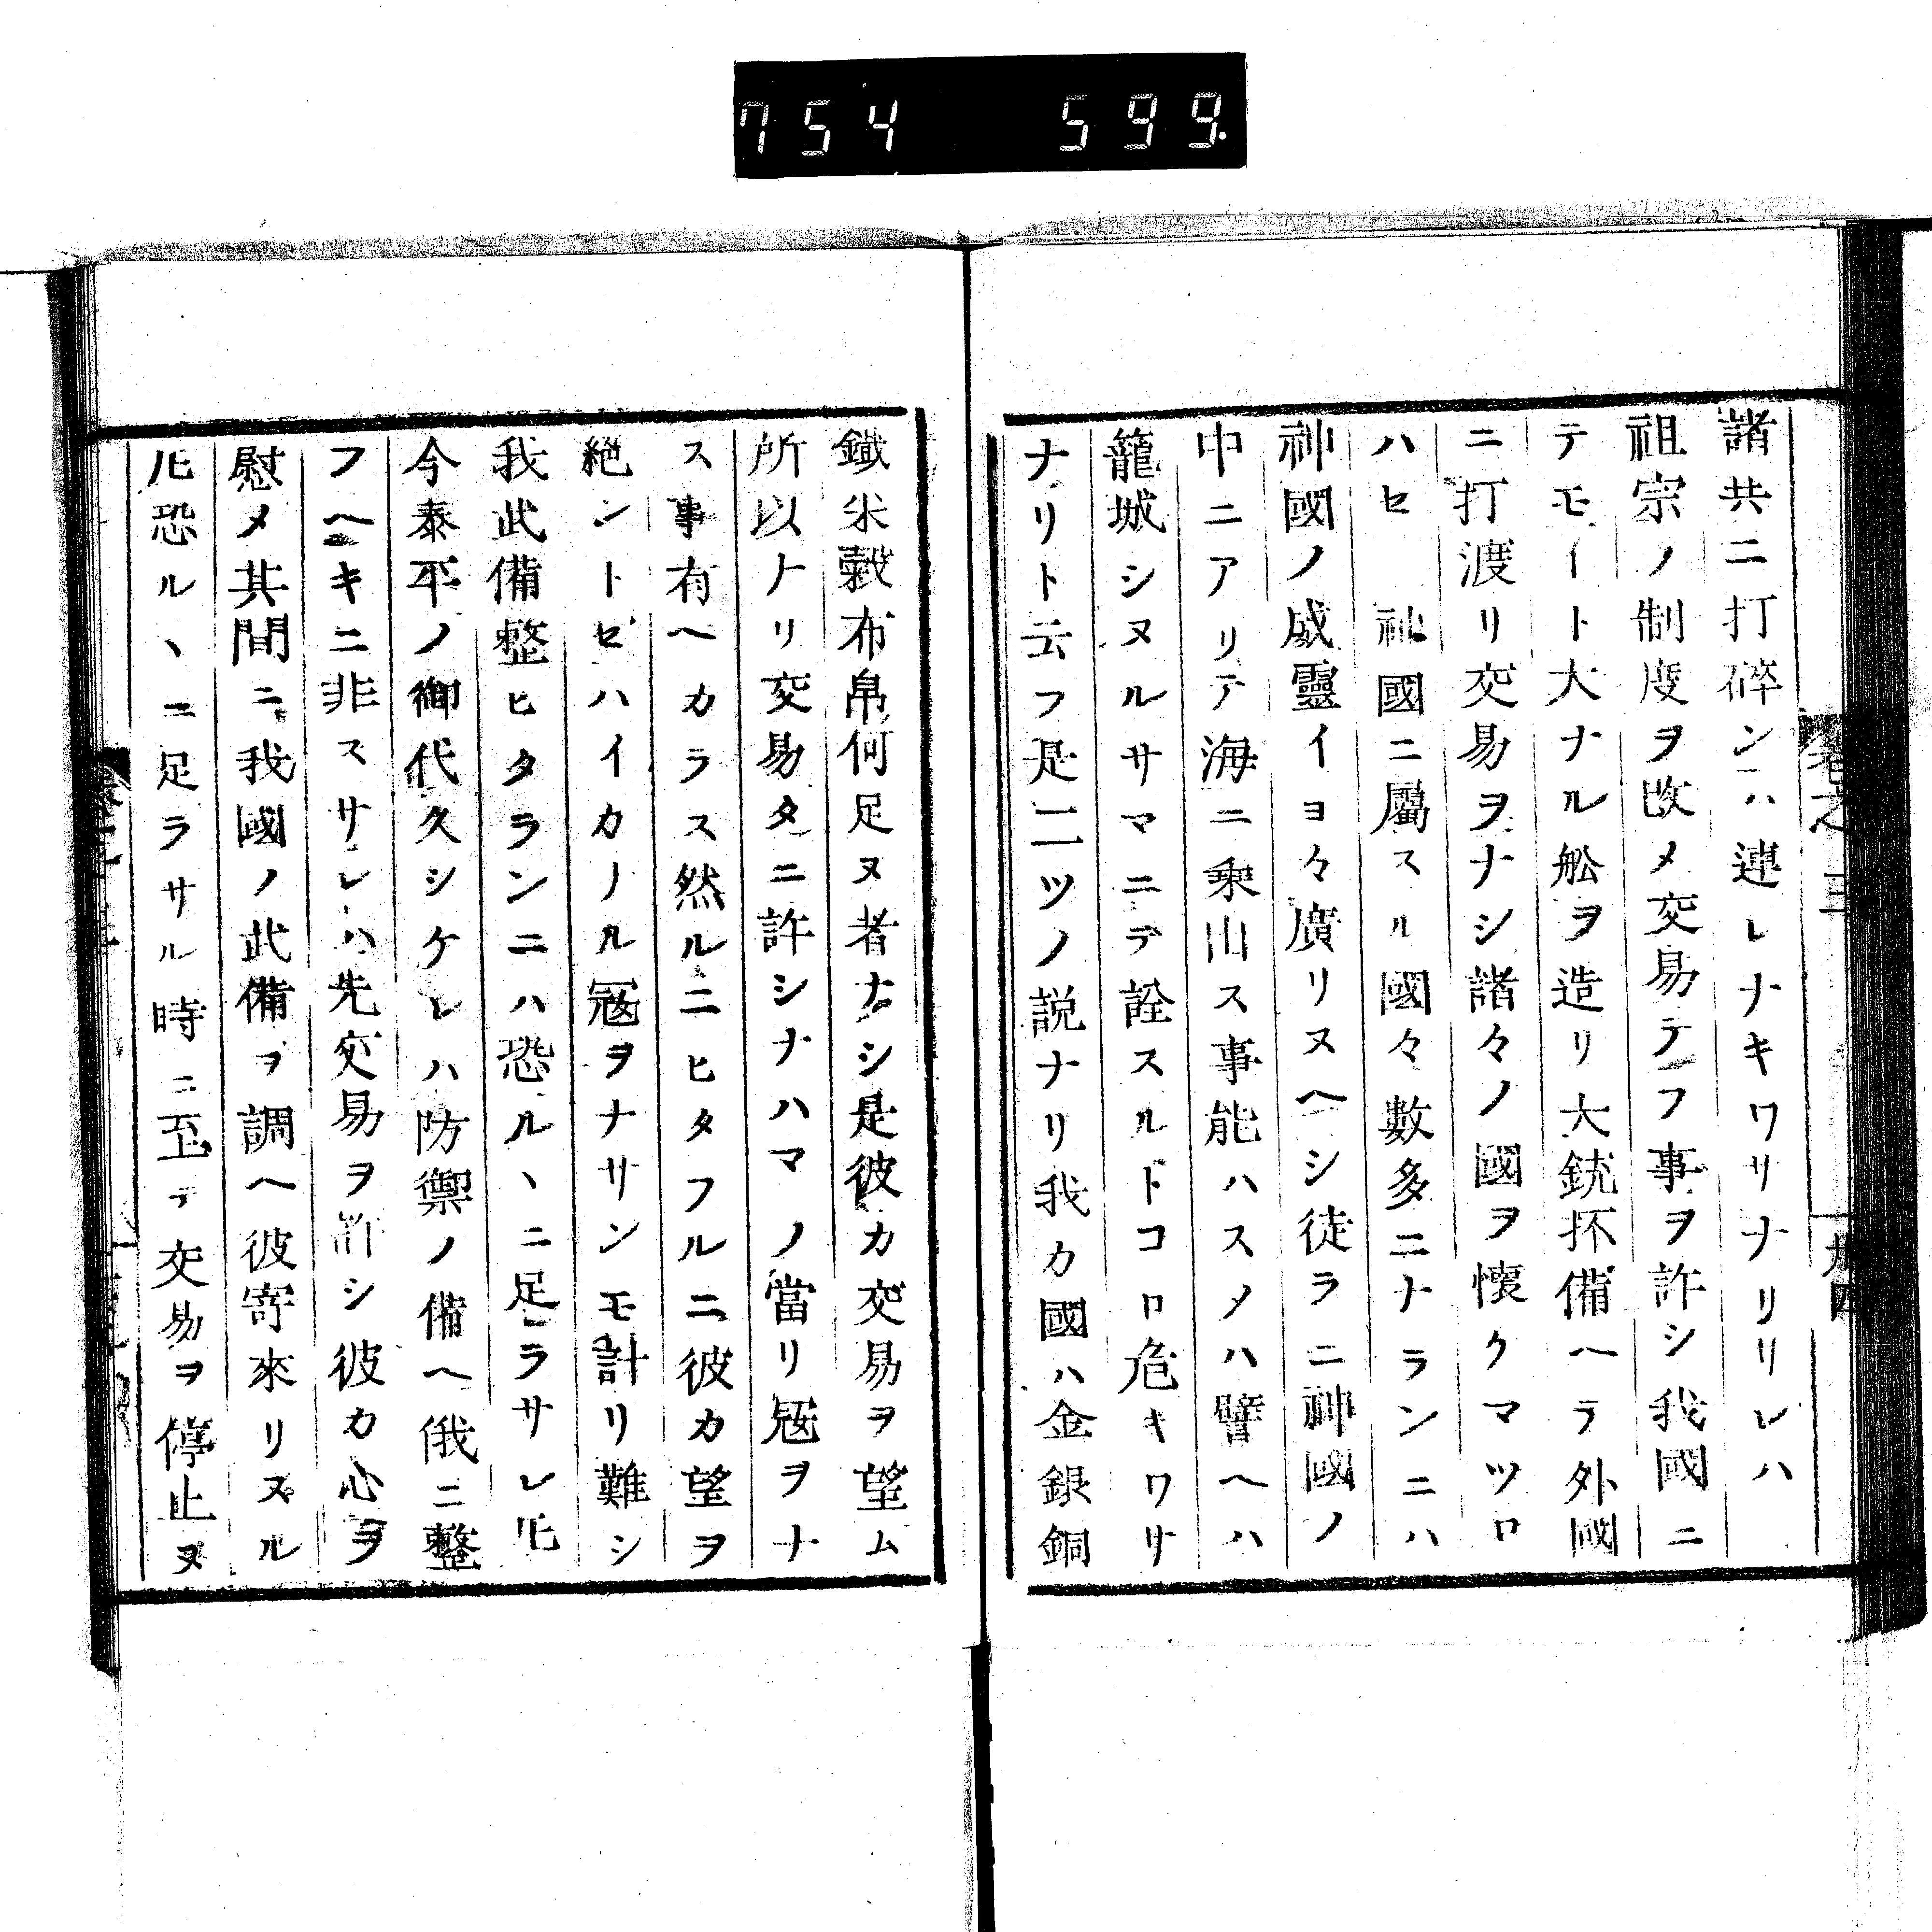 754 599.
諸共ニ打碎ンハ連レナキワサナリリレハ
祖宗ノ制度ヲ改メ交易テフ事ヲ許シ我國ニ
テモイト大ナル舩ヲ造リ大銃抔備ヘラ外國
ニ打渡リ交易ヲナシ諸々ノ國ヲ懐クマツロ
ハセ 神國ニ屬スル國々數多ニナランニハ
神國ノ威靈イヨ々廣リヌヘシ徒ラニ神國ノ
中ニアリテ海ニ乘出ス事能ハスメハ譬ヘハ
籠城シヌルサマニテ詮スルトコロ危キワサ
ナリト云フ是二ツノ説ナリ我カ國ハ金銀銅
鐵米穀布帛何足ヌ者ナシ是彼カ交易ヲ望ム
所以ナリ交易タニ許シナハマノ當リ冦ヲナ
ス事有ヘカラス然ルニヒタフルニ彼カ望ヲ
絶ントセハイカノル冦ヲナサンモ計リ難シ
我武備整ヒタランニハ恐ルヽニ足ラサレ𪜈
今泰平ノ御代久シケレハ防禦ノ備ヘ俄ニ整
フヘキニ非スサレハ先交易ヲ許シ彼カ心ヲ
慰メ其間ニ我國ノ武備ヲ調ヘ彼寄來リヌル
𪜈恐ルヽニ足ラサル時ニ至テ交易ヲ停止ヌ
卷之三